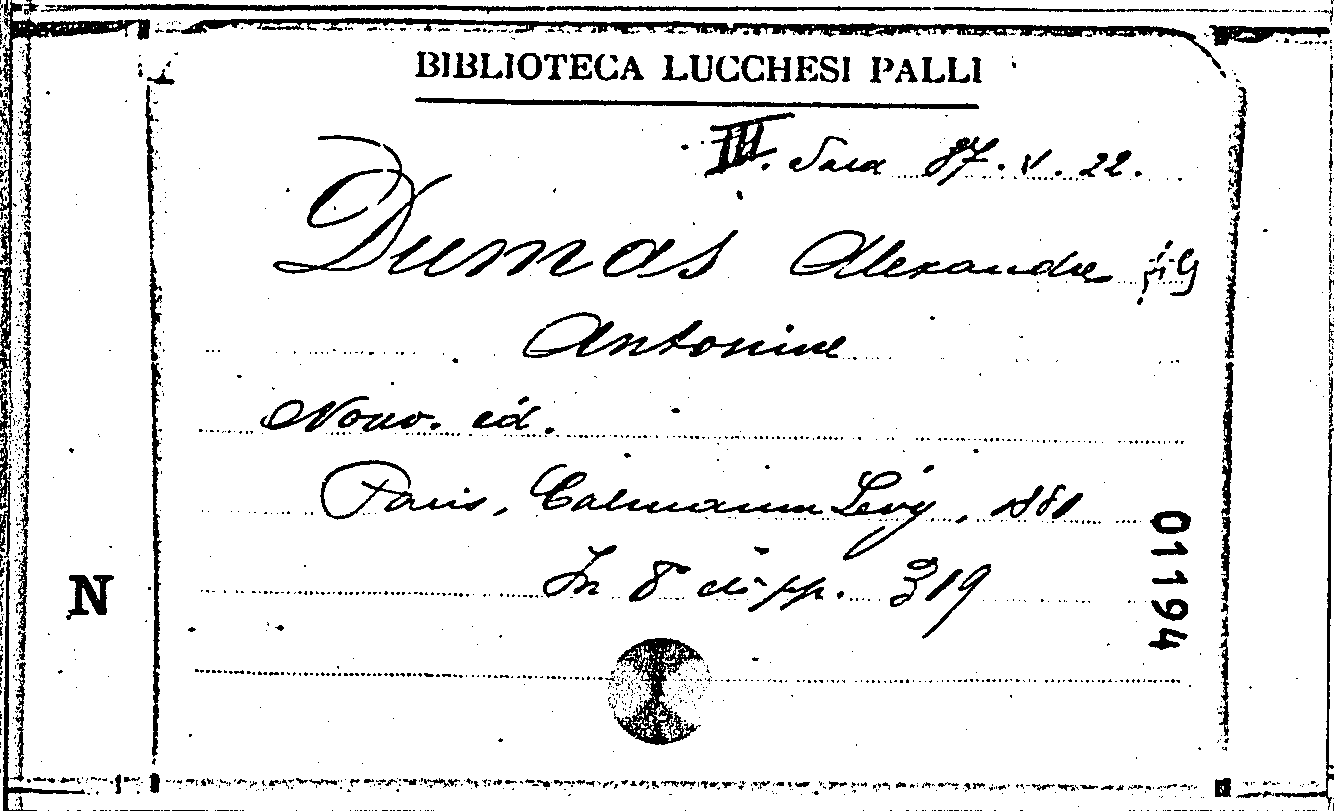 BIBLIOTECA LUCCHESI PALLI
III. Sala 87. V. 22.
Dumas Alexandre fils
Antonine
Nouv. éd.
Paris, Calmann Lévy, 1880
In 8° di pp. 319
N
01194